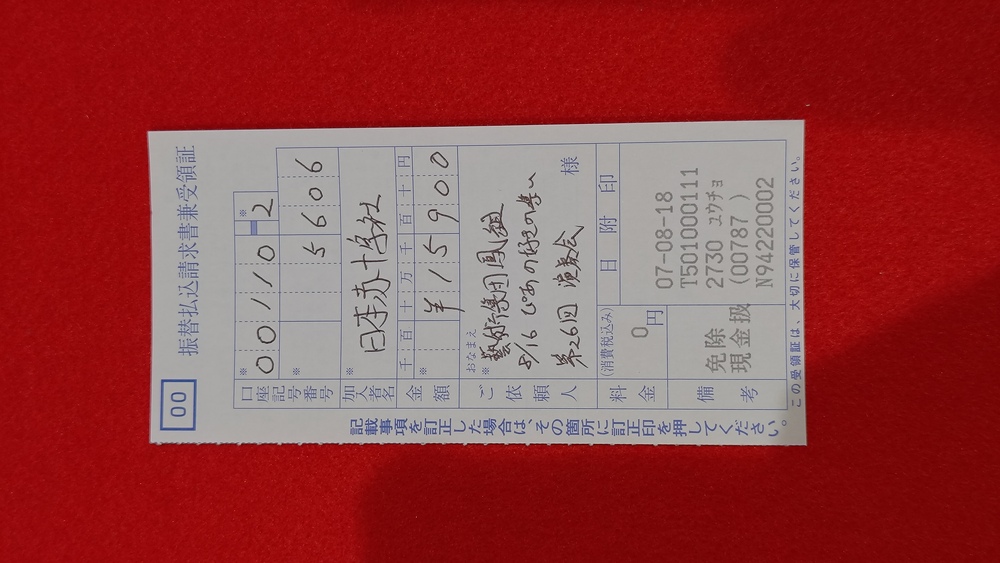 振替払込請求書兼受領証
00
口座記号番号
※
00110-2
※
5606
加入者名
※
日本赤十字社
金額
千百十万千百十円
※
¥15900
ご依頼人
おなまえ
※
藝術集団
8/16 ぴあの好きの集い
第26回 演奏会
様
料金
(消費税込み)
0円
日附印
07-08-18
T501000111
2730 ユウチョ
(00787 )
N94220002
備考
免除
現金扱
この受領証は、大切に保管してください。
記載事項を訂正した場合は、その箇所に訂正印を押してください。